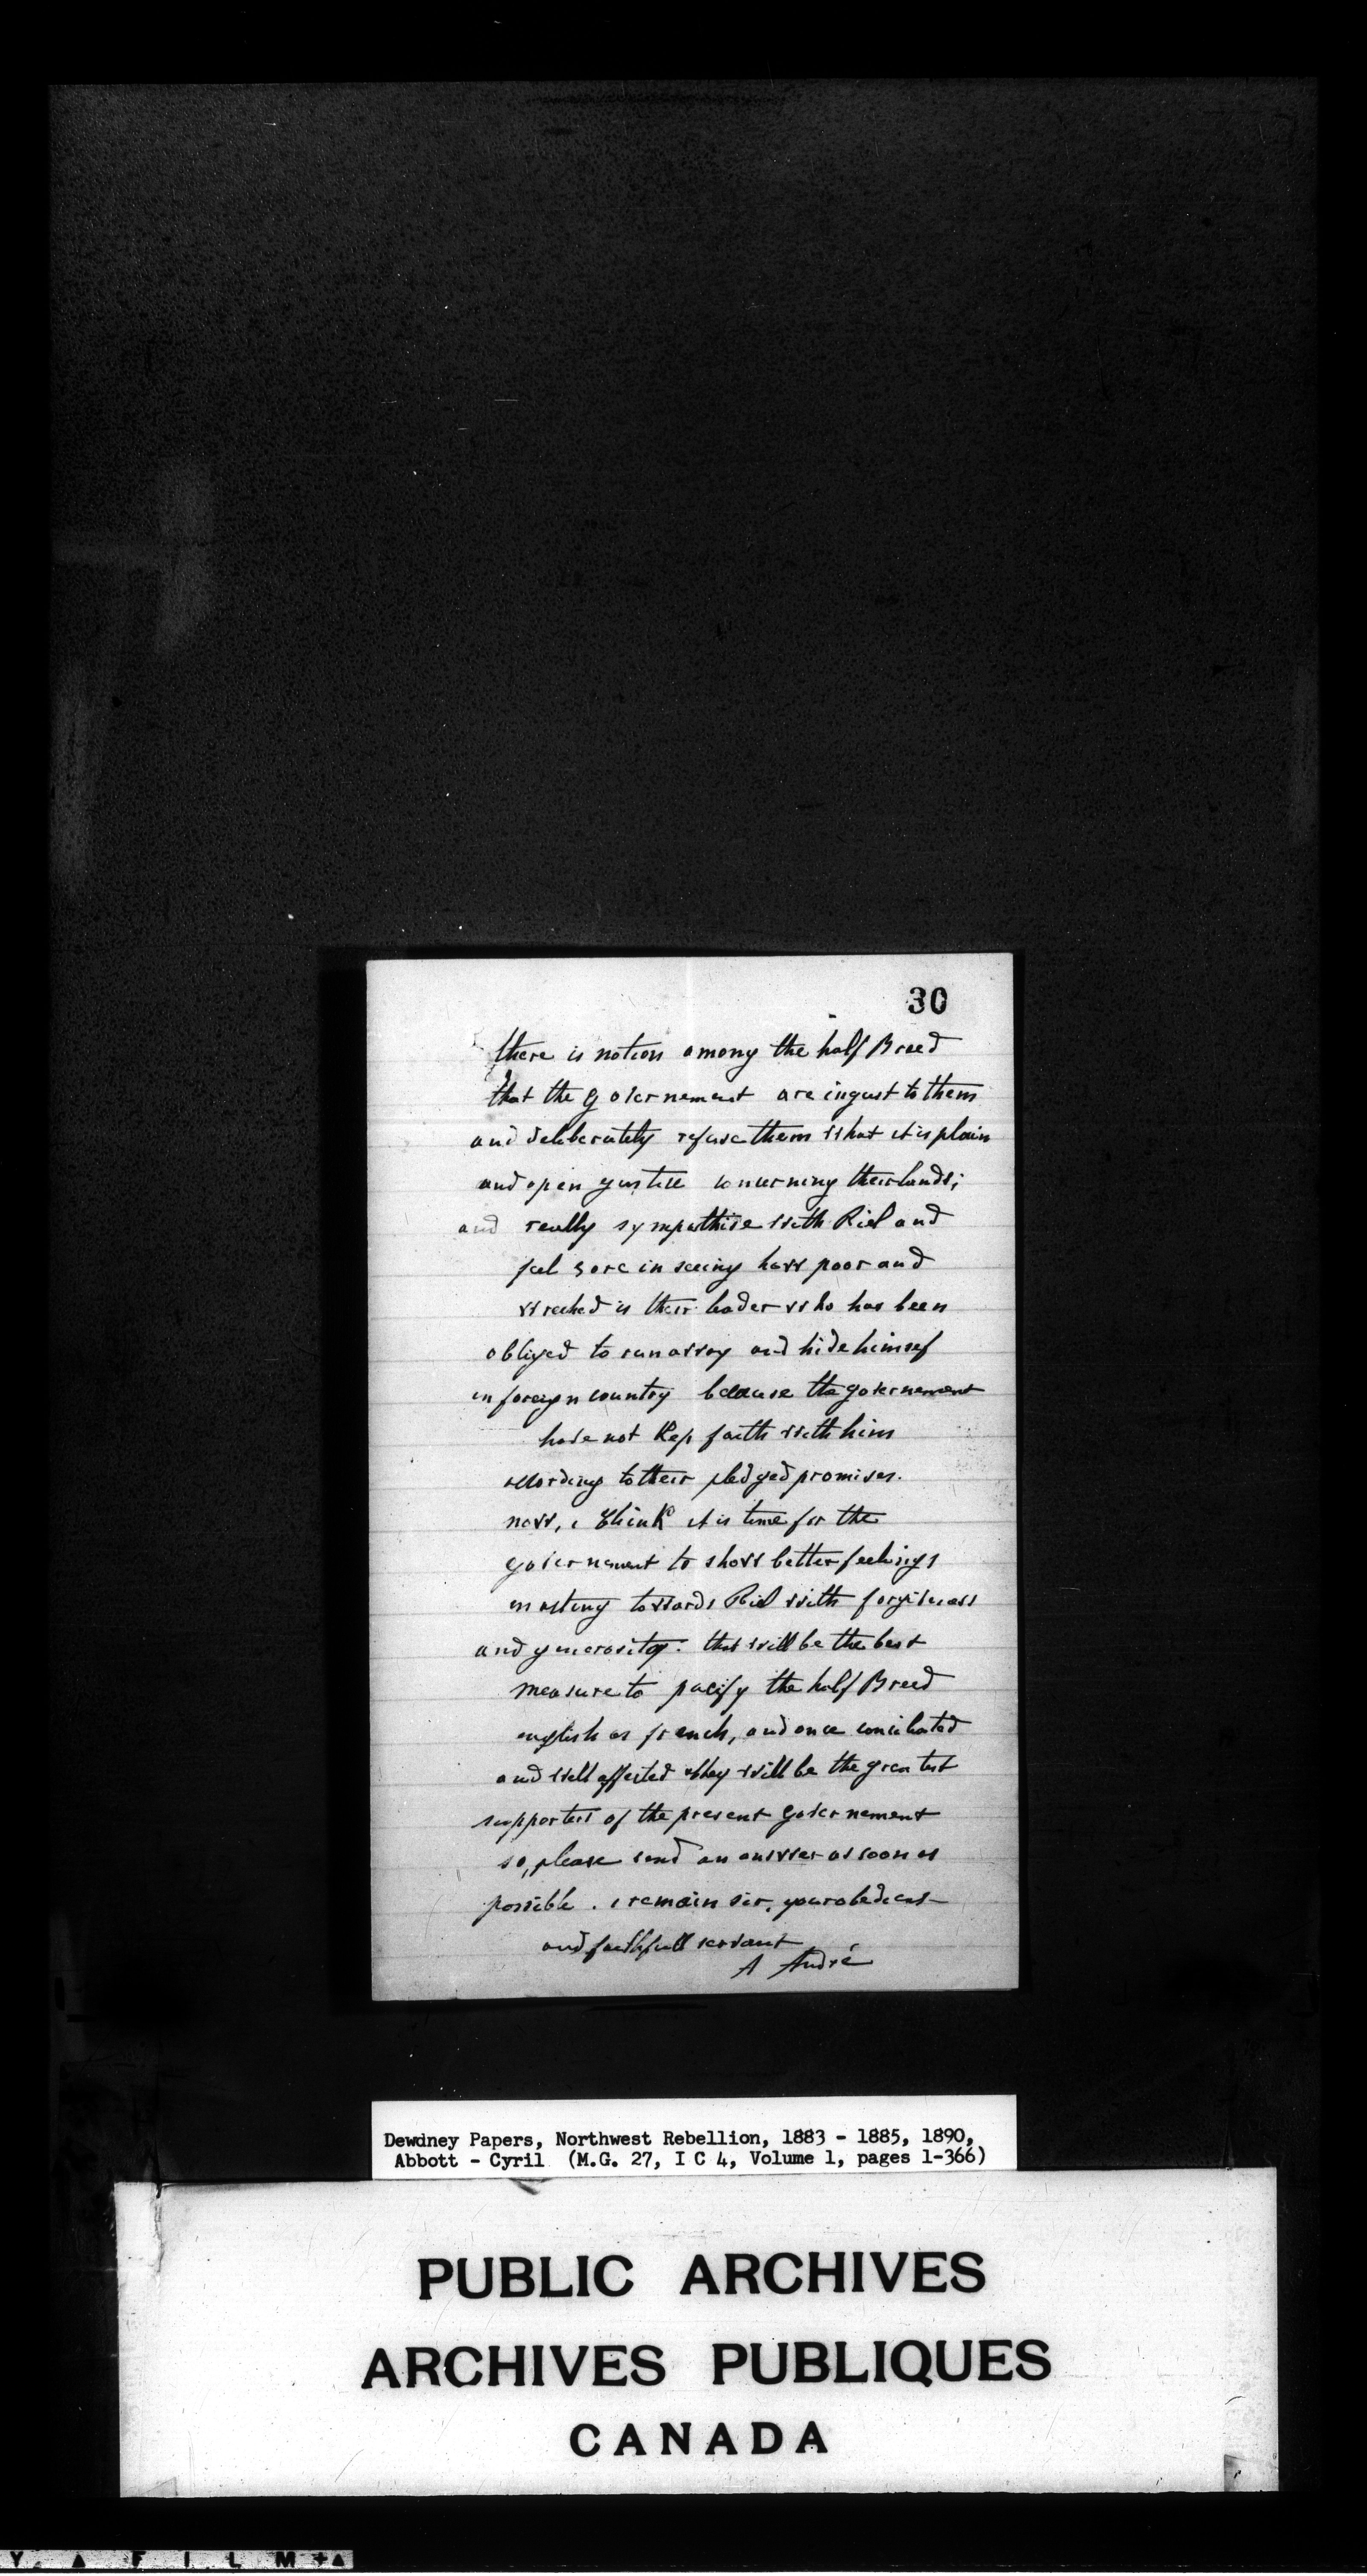 30
there is notion among the half Breed
that the governement are injust to them
and deliberately refuse them what it is plain
and open justice concerning their lands;
and really sympathise with Riel and
feel sore in seeing how poor and
wreched is their leader who has been
obliged to run away and hide himsef
in foreign country because the governement
have not Kep faith with him
according to their pledged promises.
now, i think it is time for the
governement to show better feelings
in acting towards Riel with forgiveness
and generosity. that will be the best
measure to pacify the half Breed
english or french, and once conciliated
and well affected they will be the greatest
supporters of the present governement
so, please send an answer as soon as
possible. i remain sir, your obedient
and faithfull servant
A André
Dewdney Papers, Northwest Rebellion, 1883 - 1885, 1890,
Abbott - Cyril (M.G. 27, I C 4, Volume 1, pages 1-366)
PUBLIC ARCHIVES
ARCHIVES PUBLIQUES
CANADA
Y A F I L M +▲